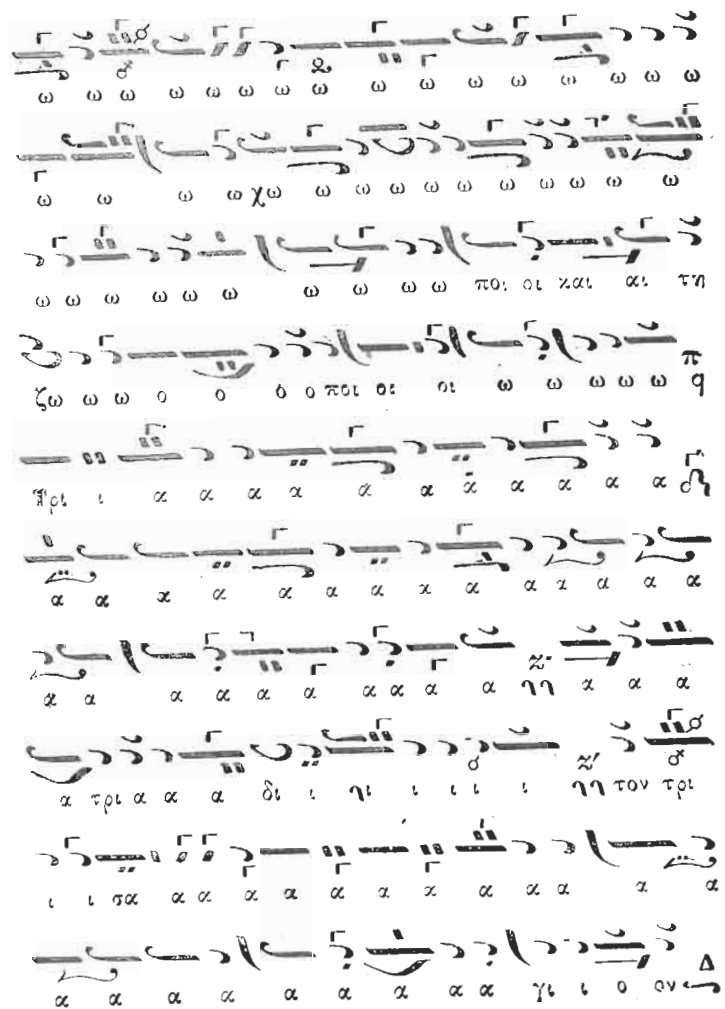 ω ω ω ω ω ω ω ω ω ω ω ω ω ω ω
ω ω ω ω χω ω ω ω ω ω ω ω ω ω ω
ω ω ω ω ω ω ω ω ω ω ποι οι και αι τη
ζω ω ω ο ο ο ο ποι οι οι ω ω ω ω ω π q
Τρι ι α α α α α α α α α α α
α α α α α α α α α α α α α α
α α α α α α α α α α ζ' ηη α α α
α τρι α α α δι ι ηι ι ι ι ι ζ' ηη τον τρι
ι ι σα α α α α α α α α α α α α
α α α α α α α α α γι ι ο ον Δ